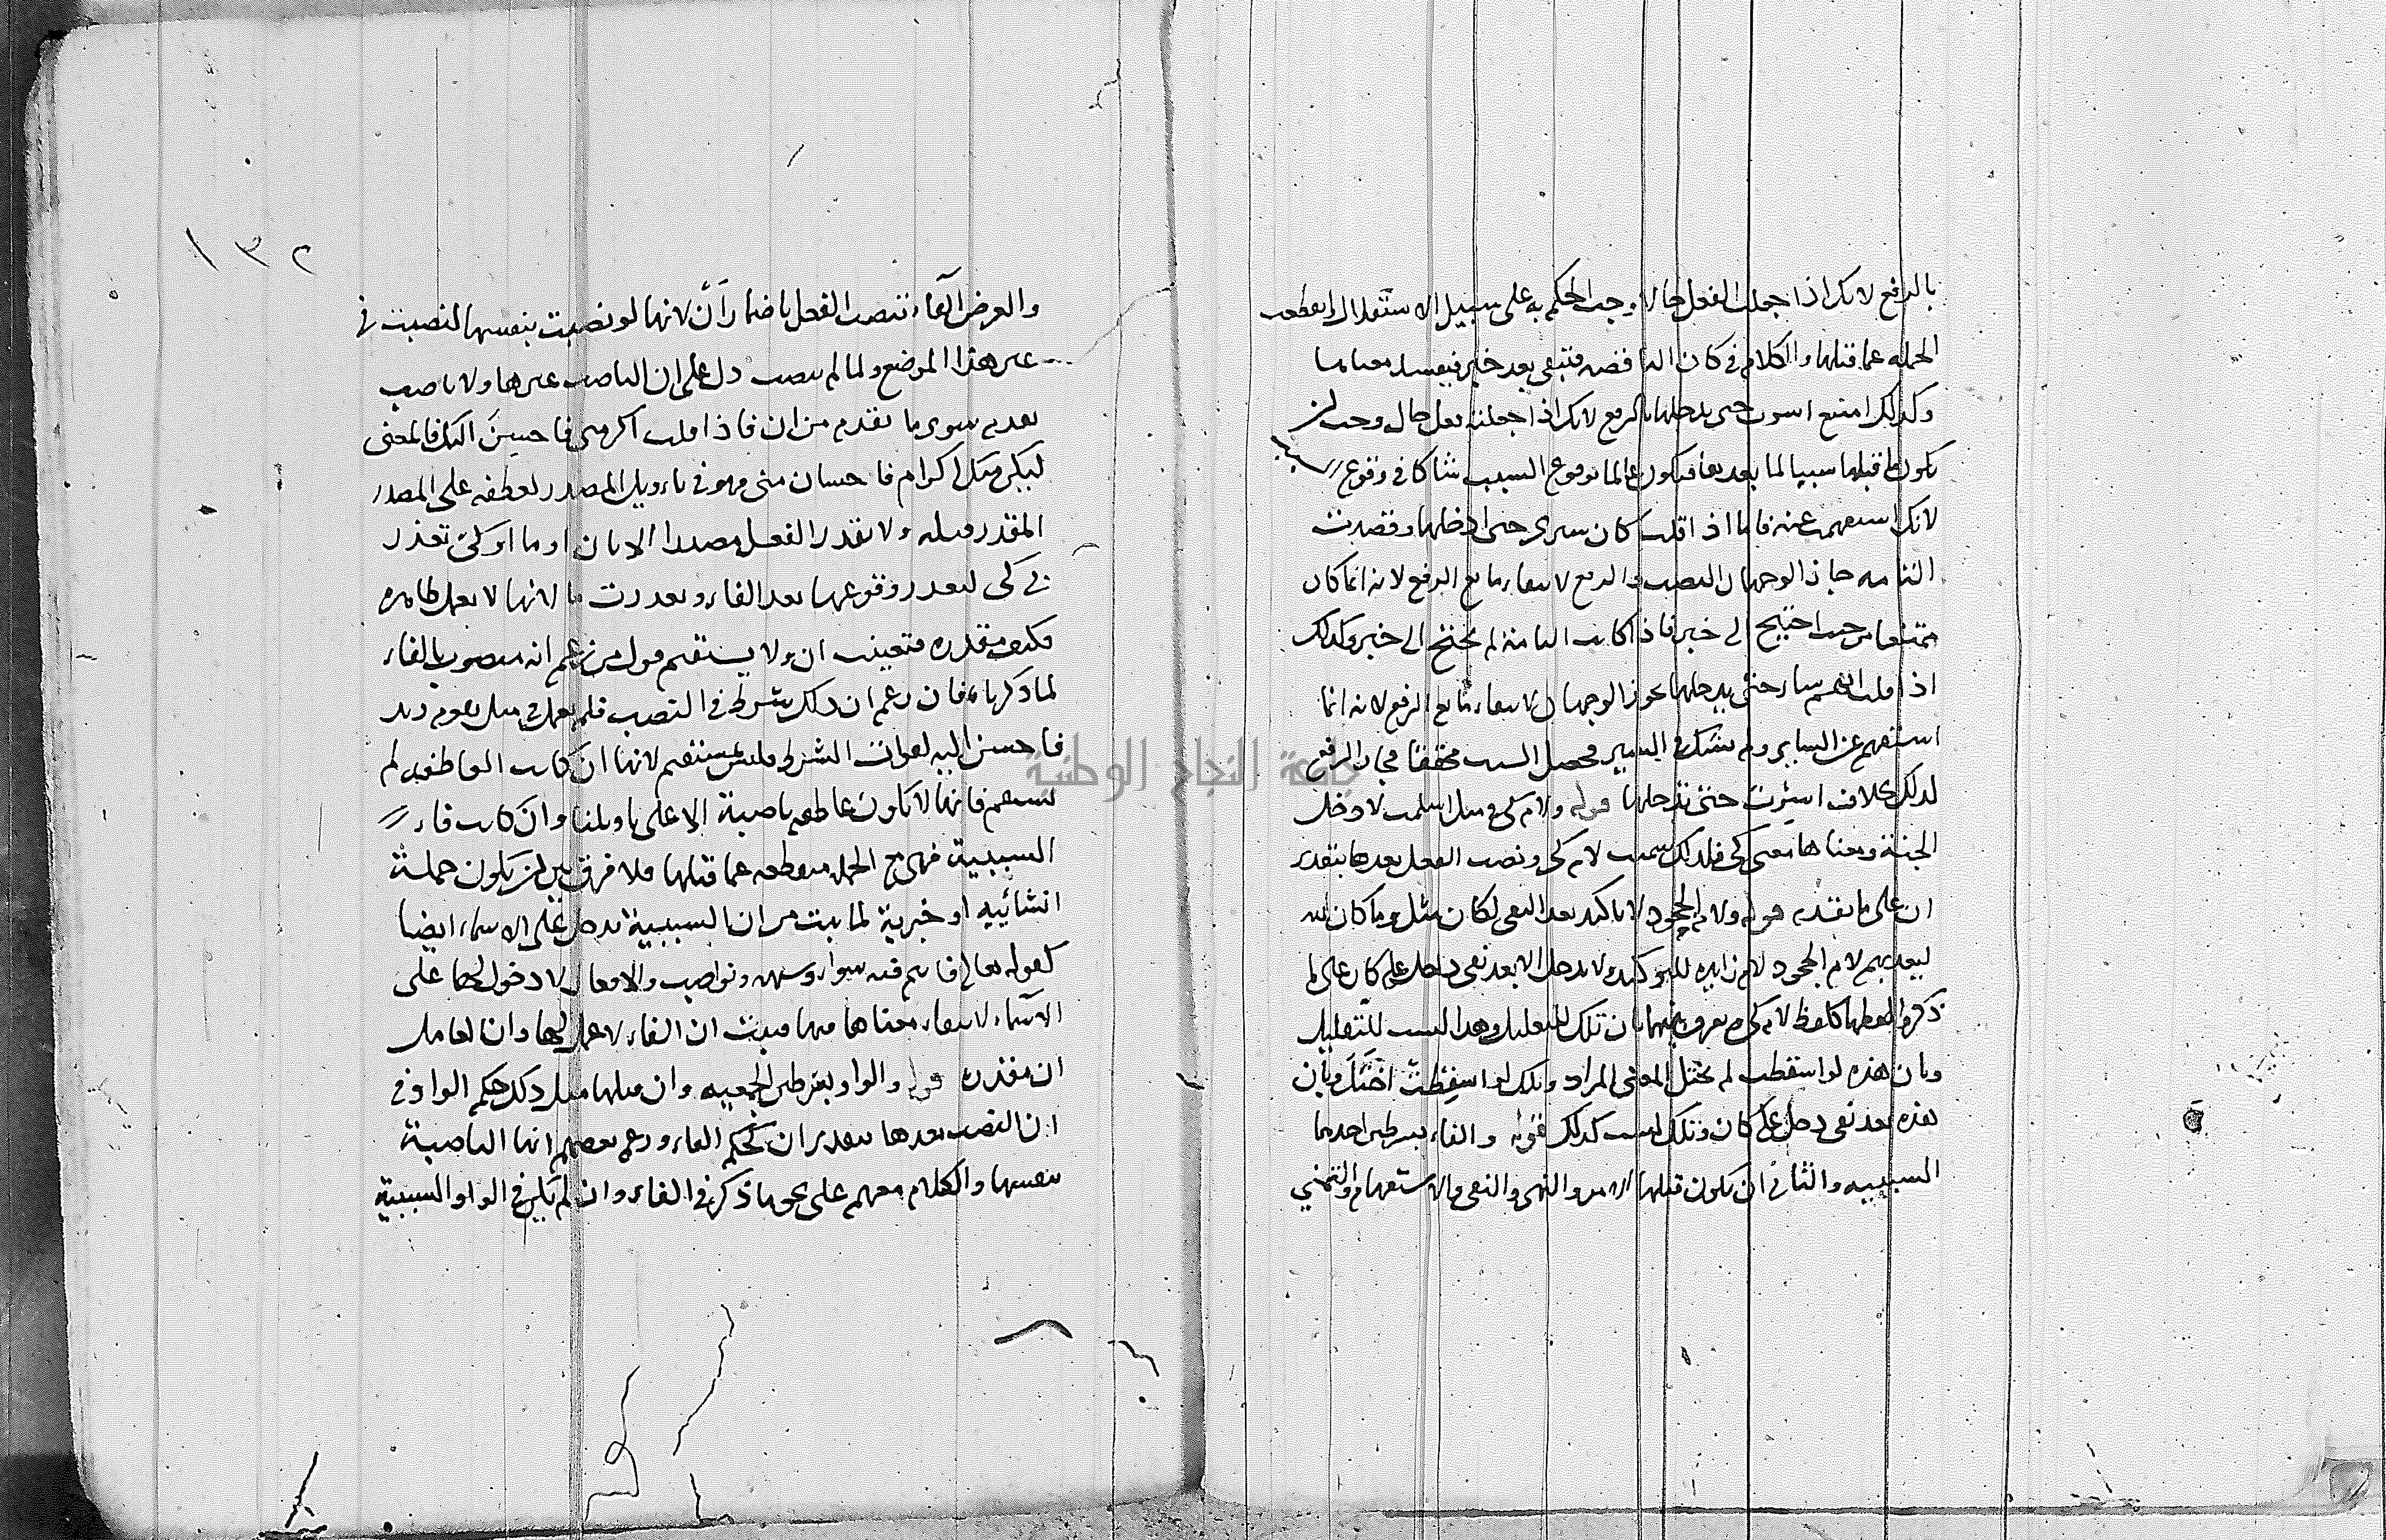 بالرفع لانك اذا جعلت الفعل حالا وجب الحكم به على سبيل الاستقلال انقطعت
الجملة عما قبلها والكلام في كان الناقصة فتبقى بعد خبر فيفسد معناها
وكذلك امتنع اسرت حتى يدخلها بالرفع لانك اذا جعلته فعل حال وجب ان
يكون ما قبلها سببا لما بعدها فيكون عالما بوقوع السبب شاكا في وقوع
لانك استفهمت عنه فاما اذا قلت كان سيرى حتى ادخلها وقصدت
التامة جاز الوجهان النصب والرفع لانتفاء مانع الرفع لانه انما كان
ممتنعا من حيث احتيج الى خبر فاذا كانت التامة لم تحتج الى خبر وكذلك
اذا قلت ايهم سار حتى يدخلها يجوز الوجهان لانتفاء مانع الرفع لانه انما
استفهم عن الساير ولم يشك في السير فحصل السبب محققا فجاز الرفع
لذلك بخلاف اسرت حتى تدخلها قوله ولام كي في مثل اسلمت لادخل
الجنة ومعناها معنى كي فلذلك سميت لام كي ونصب الفعل بعدها بتقدير
ان على ما تقدم قوله ولام الجحود لام تاكيد بعد النفى لكان مثل وما كان الله
ليعذبهم لام الجحود لام زايدة للتوكيد ولا تدخل الا بعد نفى داخل على كان على ما
ذكر ولفظها كلفظ لام كي ويفرق بينهما بان تلك للتعليل وهذا ليست للتعليل
وبان هذه لو اسقطت لم يختل المعنى المراد وتلك لو اسقطت اختل وبان
هذه بعد نفى دخل على كان وتلك ليست كذلك قوله والفاء بشرطين احدهما
السببية والثاني ان يكون قبلها الامر والنهى والنفى والاستفهام والتمني
١٣٢
والعرض الفاء تنصب الفعل باضمار أن لانها لو نصبت بنفسها لنصبت في
غير هذا الموضع ولما لم تنصب دل على ان الناصب غيرها ولا ناصب
بعدم سوى ما تقدم من ان فاذا قلت اكرمني فاحسن اليك فالمعنى
ليكن منك اكرام فاحسان منى وهو في تاويل المصدر لعطفه على المصدر
المقدر قبله ولا يقدر الفعل مصدرا الا بان او ما او كي تعذر
في كي لتعذر وقوعها بعد الفاء وتعذرت ما لانها لا تعمل ظاهرة
فكيف مقدرة فتعينت ان ولا يستقيم قول من زعم انه منصوب بالفاء
لما ذكرناه فان زعم ان ذلك شرط في النصب فلم يعمل في مثل يقوم زيد
فاحسن اليه لفوات الشرط فليس بمستقيم لانها ان كانت العاطفة لم
تستقم فانها لا تكون عاطفة ناصبة الا على تاويلنا وان كانت فاء
السببية فهي مع الجمل منقطعة عما قبلها فلا فرق بين ان يكون جملة
انشائية او خبرية لما ثبت من ان السببية تدخل على الاسماء ايضا
كقوله تعالى فانتم فيه سواء ونواصب الافعال لا دخول لها على
الاسماء لانتفاء معناها فيها فثبت ان الفاء لا عمل لها وان العامل
ان مقدرة قوله والواو بشرطين الجمعية وان قبلها مثل ذلك حكم الواو في
ان النصب بعدها بتقدير ان كحكم الفاء وزعم بعضهم انها الناصبة
بنفسها والكلام معهم على نحو ما ذكر في الفاء وان لم يكن في الواو السببية
جامعة النجاح الوطنية